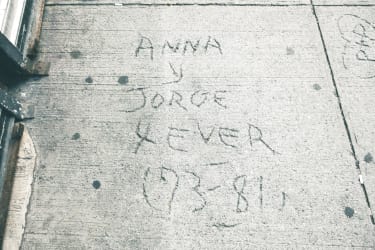 ANNA
y
JORGE
4 EVER
(73-81)